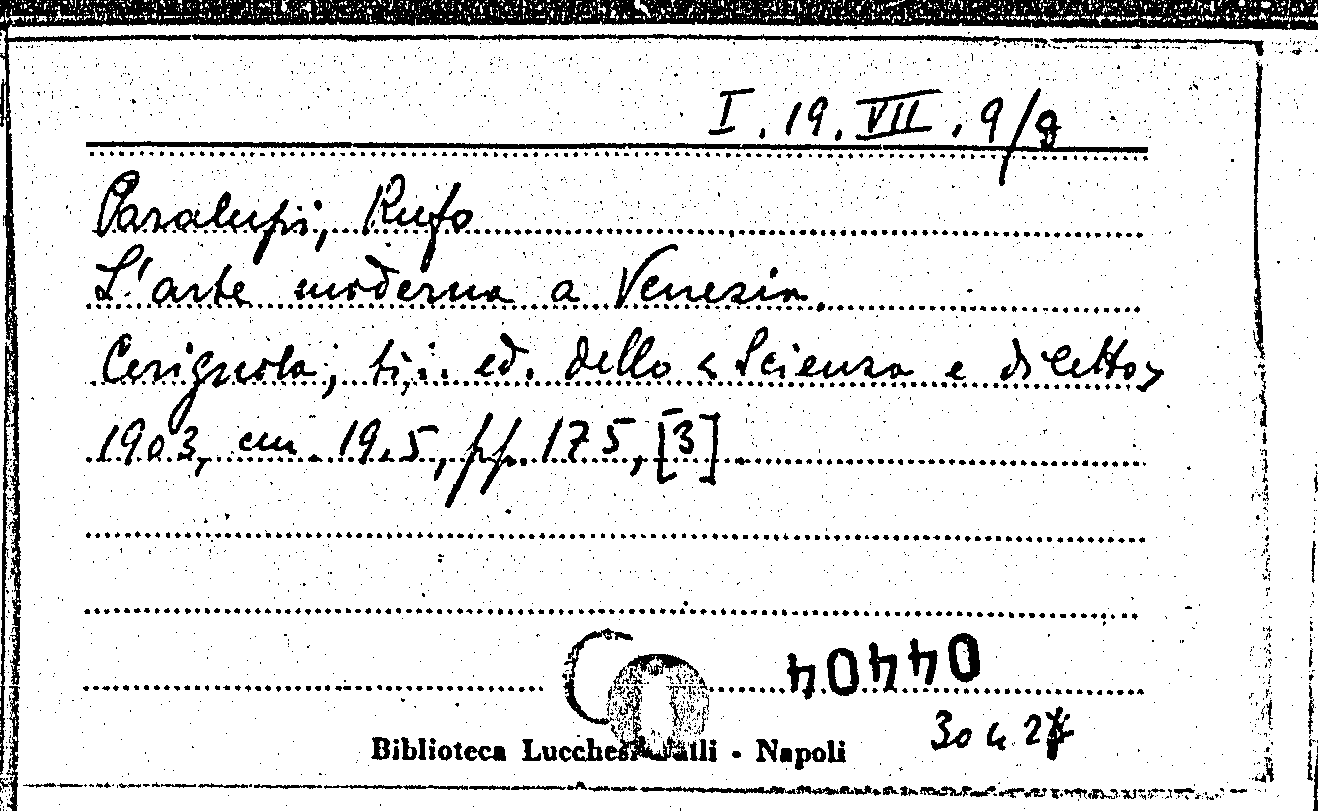 I. 19. VII. 9/8
Paralupi, Rufo
L'arte moderna a Venezia.
Cerignola, ed. dello «Scienza e diletto»
1903, cm. 19,5, pp. 175, [3].
04404
Biblioteca Lucchesi Palli - Napoli